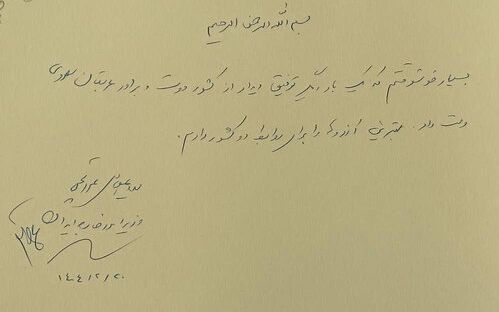 بسم الله الرحمن الرحیم
بسیار خوشوقتم که یک بار دیگر توفیق دیدار از کشور دوست و برادر عربستان سعودی
دست داد. بهترین آرزوها را برای روابط دو کشور دارم.
سید عباس عراقچی
وزیر امور خارجه ایران
۱۴۰۴/۲/۲۰